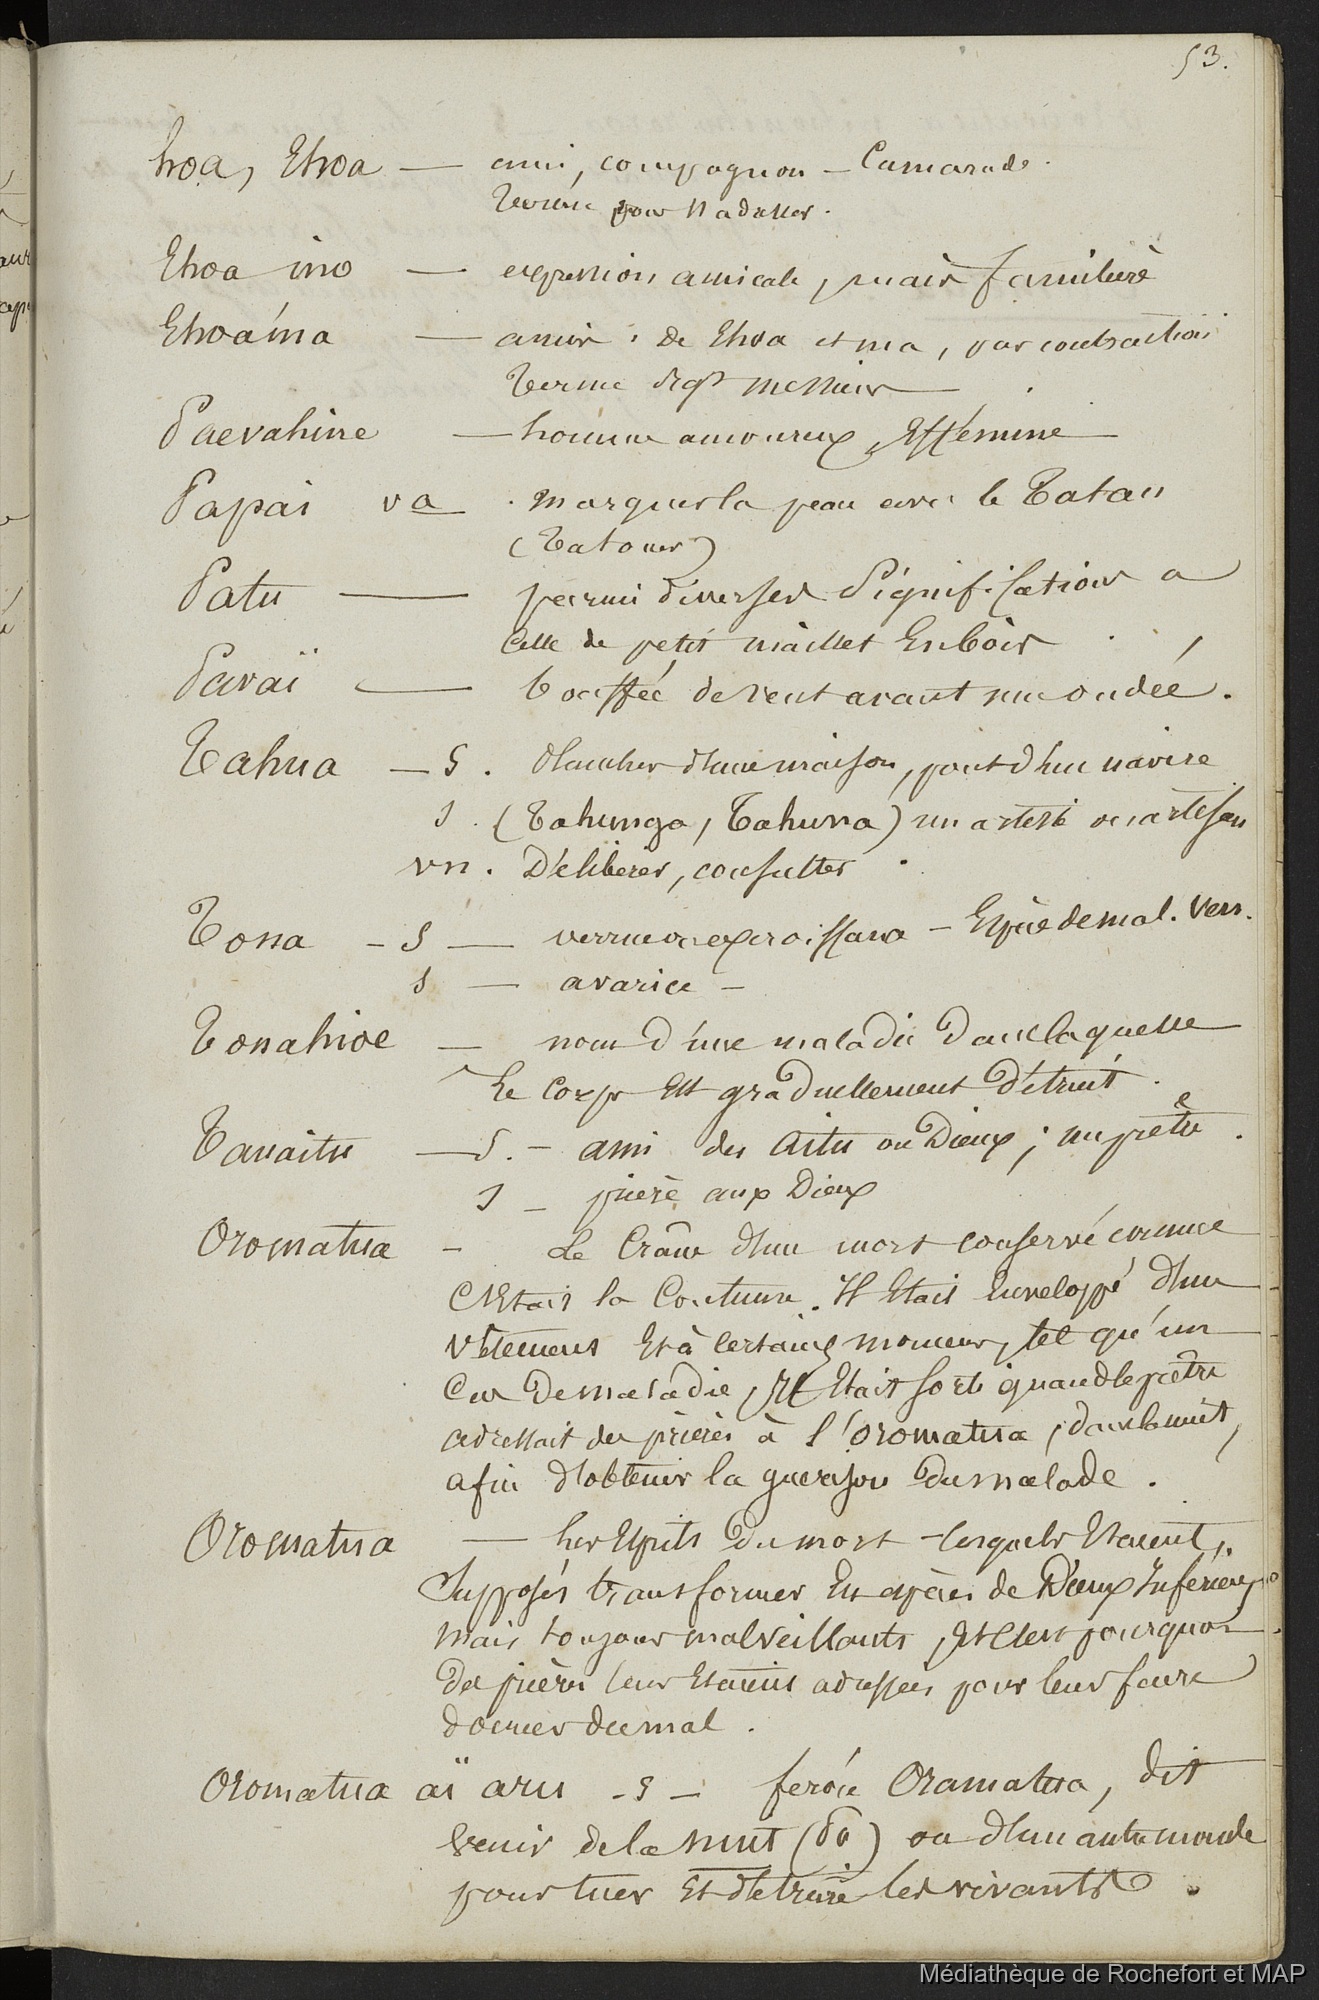 53.
hoa, Ehoa — ami, compagnon — Camarade.
Terme pour s'adresser.
Ehoa ino — expression amicale, mais familière
Ehoa ma — amis : de Ehoa et ma, par contraction
Terme sigt messieurs —
Paevahine — homme amoureux, Efféminé —
Papai va . marquer la peau avec le Tatau
(Tatouer)
Patu — parmi diverses Signification a
Celle de petit maillet En bois
Paraï — bouffée de vent avant une ondée.
Tahua — S. Plancher d'une maison, pont d'un navire
S. (Tahunga, Tahuna) un artiste ou artisan
vn. Délibérer, consulter.
Tona — S — verrue ou excroissance — Espèce de mal. Ven.
S — avarice —
Tonahioe — nom d'une maladie dans laquelle
Le Corps Est graduellement Détruit.
Tauaitu — S. — ami des Aitu ou Dieux ; un prêtre.
S — prière aux Dieux
Oromatua — Le Crâne d'un mort conservé comme
C'Etait la Coutume. Il Etait Enveloppé d'un
vêtement Et à certains moments, tel qu'un
Cas De maladie, Il Etait sorti quand le prêtre
adressait des prières à l'Oromatua, dans la nuit,
afin d'obtenir la guérison Du malade.
Oromatua — Les Esprits Du mort — lesquels Etaient
Supposés transformer En espèces de Dieux Inférieurs
mais toujours malveillants, Et C'est pourquoi
Des prières leur Etaient adressées pour leur faire
donner du mal.
Oromatua aï aru — S — feroce Oramatua, dit
venir de la nuit (Po) ou d'un autre monde
pour tuer Et détruire les vivants.
Médiathèque de Rochefort et MAP